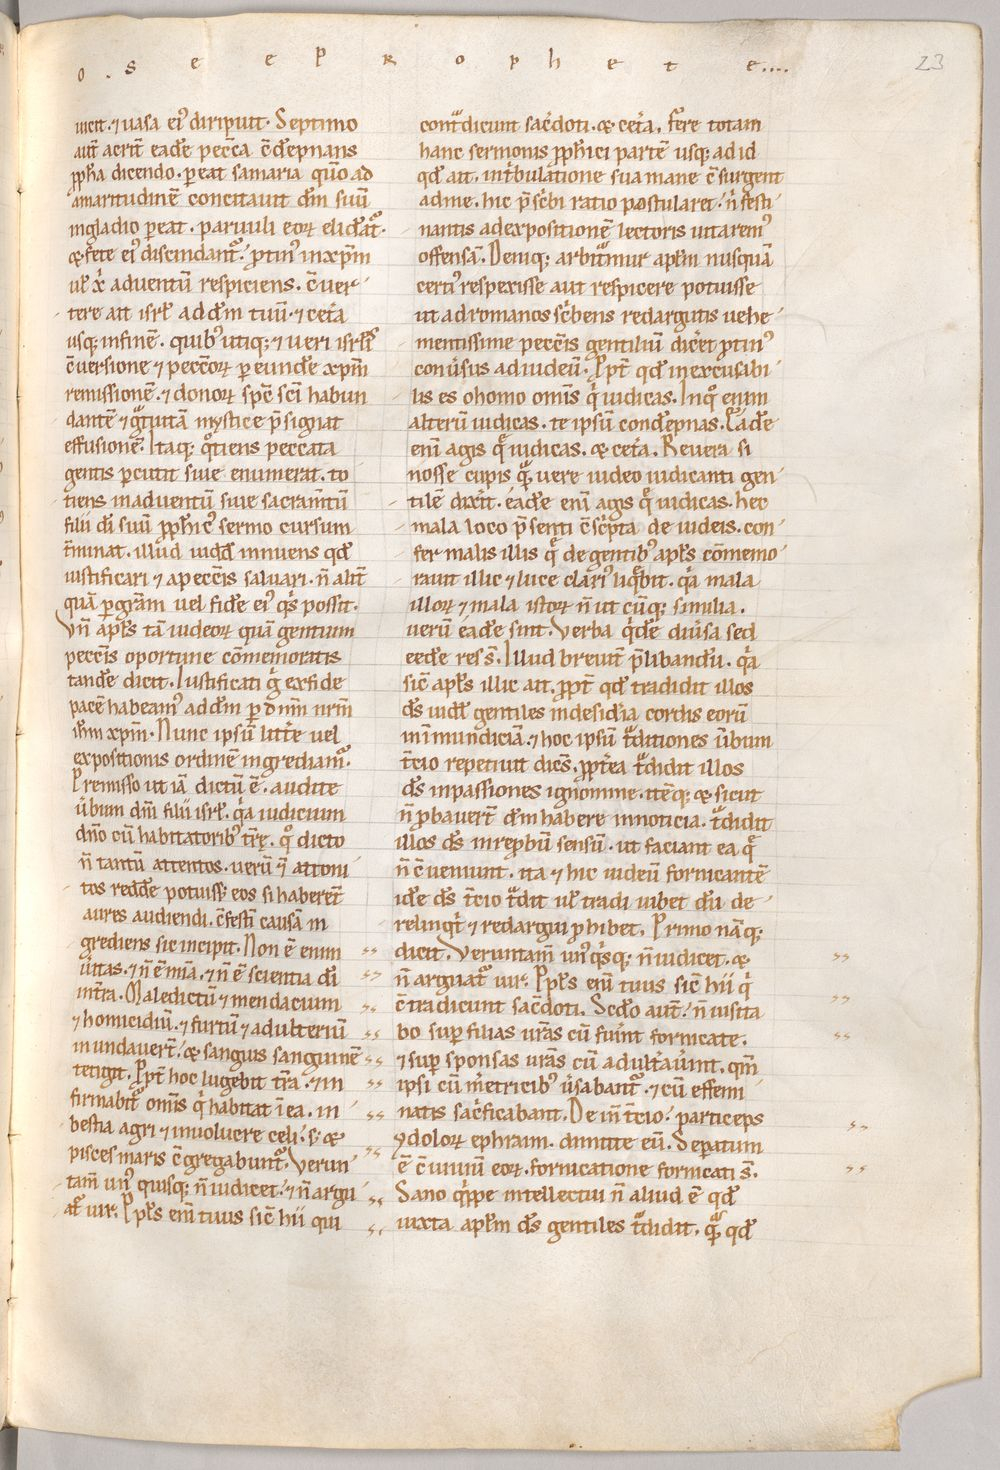 o . s e e p R o p h e t e....
23
uicit. ⁊ uasa eiꝰ diripuit. Septimo
aut̄ acrit̄ eadē pecc̄a c̄dēpnans
ꝓph̄a dicendo. pereat samaria qm̄o ad
amaritudinē concitauit dm̄ suū
ingladio pereat. paruuli eoꝝ elidāt᷑.
& fete eiꝰ discindant᷑. ꝓtinꝰ inxp̄m
ul̓ x̄ī aduentū respiciens. c̄uer
tere ait isrl̓ ad dn̄m tuū. ⁊ cet̄a
usq; infinē. quibꝰ utiq; ⁊ ueri isrl̓is
c̄uersione ⁊ pecc̄oꝝ ꝑ eundē xp̄m
remissionē. ⁊ donoꝝ spc̄ sc̄i habun
dantē ⁊ gͣtuitā mystice p̄signat
effusionē. Itaq; qͦtiens peccata
gentis percutit siue enumerat. to
tiens inaduentū siue sacram̄tū
filii dī suū ꝓph̄icꝰ sermo cursum
t̄minat. illud uidꝫ innuens qd̓
iustificari ⁊ apecc̄is saluari. n̄ alit̄
quā ꝑgr̄am uel fidē eiꝰ qͥs possit.
Vn̄ apl̓s tā iudeoꝝ quā gentium
peccīs oportune cōmemoratis
tandē dicit. Iustificati gͥ exfide
pacē habeamꝰ addm̄ ꝑ dnm̄ nrm̄
ih̄m xp̄m. Nunc ipsū litt̄e uel
expositionis ordinē ingrediam᷑.
Premisso ut iā dictū ē. audite
ūbum dn̄i filii isrl̓. qͥa iudicium
dn̄o cū habitatoribꝰ t̄rę. qͦ dicto
n̄ tantū attentos. uerū ⁊ attoni
tos reddē potuiss; eos si haberēt
aures audiendi. c̄festī causā in
grediens sic incipit. Non ē enim
ūitas. ⁊ n̄ ē mīa. ⁊ n̄ ē scientia dī
int̄ra. Maledictū ⁊ mendacium
⁊ homicidiū. ⁊ furtū ⁊ adulteriū
inundauer̄t. & sanguis sanguinē
tetigit. Ꝓpt̄ hoc lugebit t̄ra. ⁊ in
firmabit᷑ omīs qͥ habitat ī ea. in
bestia agri ⁊ inuolucre celi. s; &
pisces maris c̄gregabunt᷑. Verun
tam̄ unꝰ quisq; n̄ iudicet. ⁊ n̄ argu
at᷑ uir. Ppl̓s enī tuus sic̄ hii qui
contͣdicunt sac̄doti. & cet̄a. fere totam
hanc sermonis ꝓph̄ici partē usq; ad id
qd̓ ait. int̄bulatione sua mane c̄surgent
adme. hic p̄sc̄bi ratio postularet. n̄ festi
nantis adexpositionē lectoris uitaremꝰ
offensā. Deniq; arbit᷑mur apl̓m nusquā
certiꝰ respexisse aut respicere potuisse
ut adromanos sc̄bens redargutis uehe
mentissime peccīs gentiliū diceret ꝓtinꝰ
conūsus adiudeū. Ꝓpt̄ qd̓ inexcusabi
lis es ohomo omīs qͥ iudicas. Inqͦ enim
alterū iudicas. te ipsū condēpnas. Eadē
enī agis qͣ iudicas. & cet̄a. Reuera si
nosse cupis qͣꝫ uere iudeo iudicanti gen
tilē dixit. éadē enī agis qͣ iudicas. hec
mala loco p̄senti c̄sc̄pta de iudeis. con
fer malis illis qͣ de gentibꝰ apl̓s cōmemo
rauit illic ⁊ luce clariꝰ liqͣbit. qͥa mala
illoꝝ ⁊ mala istoꝝ n̄ ut cūq; similia.
uerū éadē sint. Verba qͥdē diūsa sed
eedē res s̄. Illud breuit̄ p̄libandū. qͥa
sic̄ apl̓s illic ait. ꝓpt̄ qd̓ tradidit illos
ds̄ uidꝫ gentiles indesidīa cordis eorū
ininmundiciā. ⁊ hoc ipsū tͣditiones ūbum
t̄cio repetiuit dicēs. ꝓpt̄ea tͣdidit illos
ds̄ inpassiones ignōminie. itēq; & sicut
n̄ ꝓbauer̄t dm̄ habere innoticia. tͣdidit
illos ds̄ inreꝓbū sensū. ut faciant ea qͣ
n̄ c̄ueniunt. ita ⁊ hic iudeū fornicantē
idē ds̄ t̄cio tͣdit ul̓ tradi iubet dū de
relinqͥt ⁊ redargui ꝓhibet. Primo nāq;
dicit. Veruntam̄ unꝰ qͥsq; n̄ iudicet. &
n̄ arguat᷑ uir. Ppl̓s enī tuus sic̄ hii qͥ
c̄tradicunt sac̄doti. Scd̓o aut̄. n̄ uisita
bo suꝑ filias uras̄ cū fuīnt fornicate.
⁊ suꝑ sponsas uras̄ cū adult̄aūint. qm̄
ipsi cū m̄etricibꝰ ūsabant᷑. ⁊ cū effemi
natis sac̄ficabant. De in̄ t̄cio. particeps
ydoloꝝ ephraim. dimitte eū. Seꝑatum
ē c̄uiuiū eoꝝ. fornicatione fornicati s̄.
Sano qͥppe intellectui n̄ aliud ē qd̓
iuxta apl̓m ds̄ gentiles tͣdidit. qͣꝫ qd̓